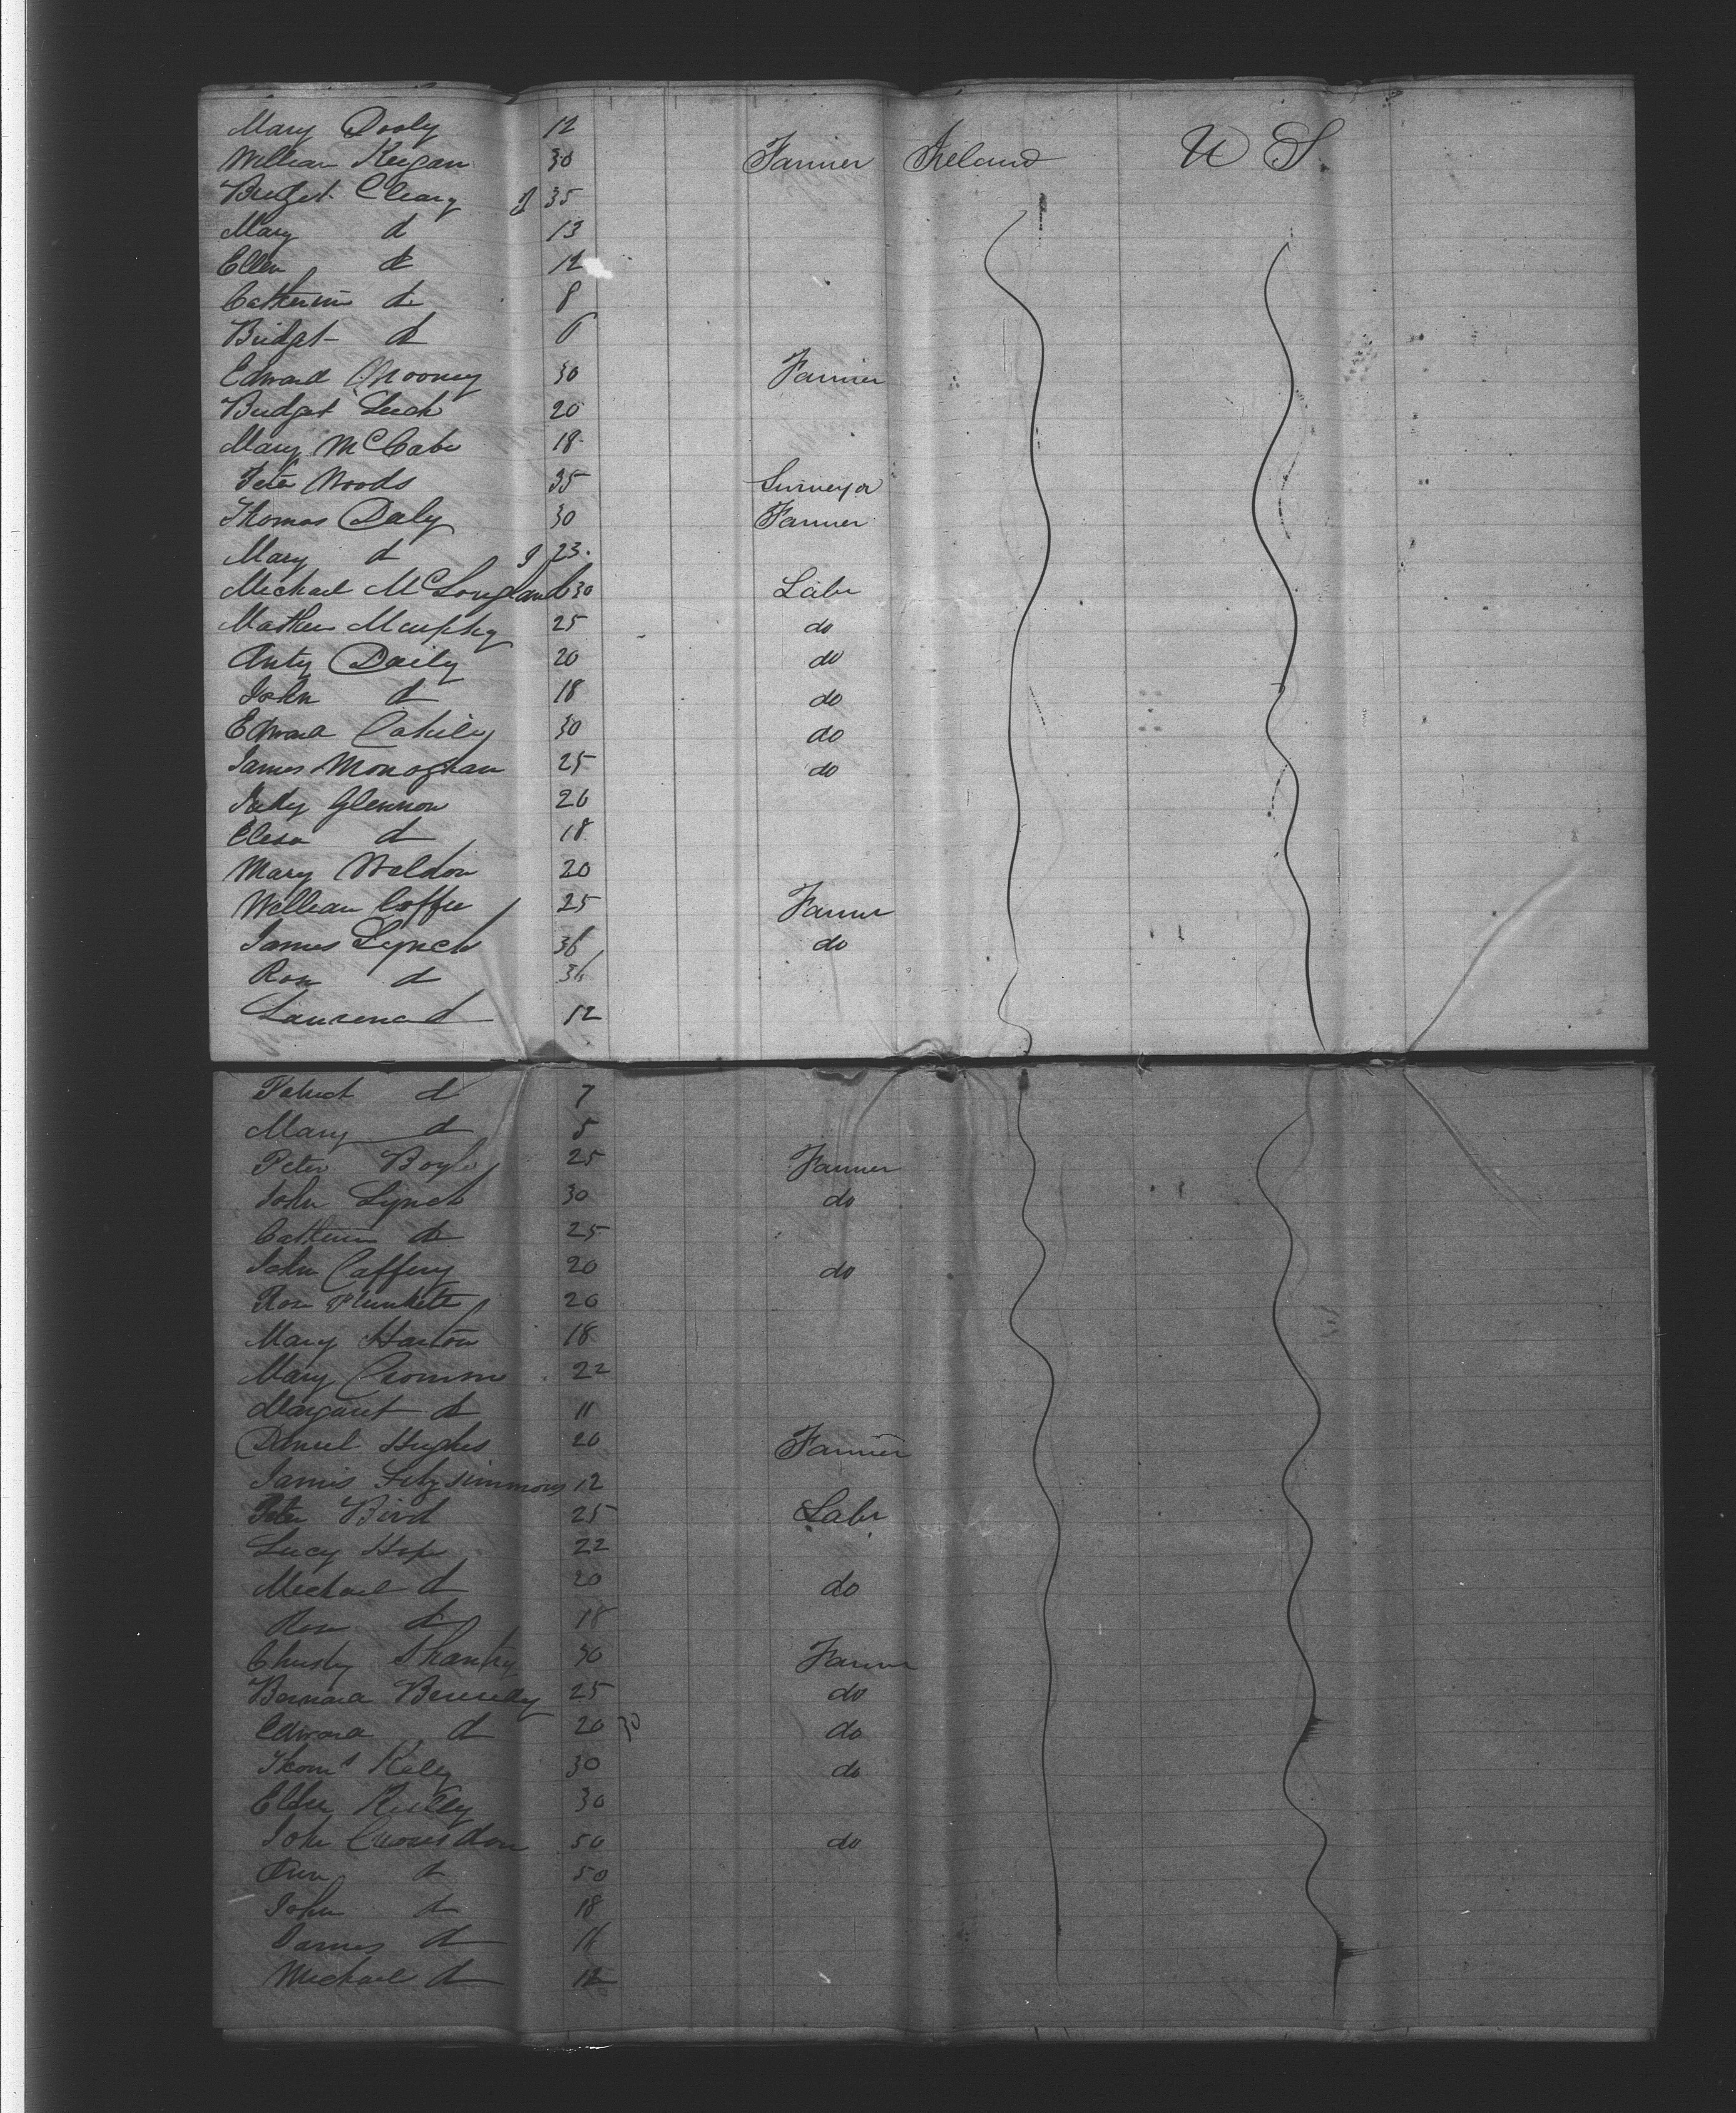 Mary Dooly 12
William Keegan 30 Farmer Ireland U S
Bridget Cleary 35
Mary d 13
Ellen d 12
Catherine d 8
Bridget d 6
Edward Mooney 30 Farmer
Bridget Leech 20
Mary McCabe 18
Peter Woods 35 Surveyor
Thomas Daly 30 Farmer
Mary d 23
Michael McLoughland 30 Labr
Mathew Murphy 25 do
Anty Daily 20 do
John d 18 do
Edward 30 do
James Monoghan 25 do
Judy Glennon 20
Elesa d 18
Mary Weldon 20
William Coffee 25 Farmer
James Lynch 36 do
Rose d 36
Laurence d 12
Patrick d 7
Mary d 5
Peter Boyle 25 Farmer
John Lynch 30 do
Catherine d 25
John Caffery 20 do
Rose Plunkett 20
Mary Harton 18
Mary 22
Margaret d 11
Daniel Hughes 20 Farmer
James Fitzsimmons 12
Peter Bird 25 Labr
Lucy Hope 22
Michael d 20 do
Rose d 18
Christy 30 Farmer
Bernard 25 do
Edward d 20 30 do
Thoms Kelly 30 do
Ellen Reilly 30
John 50 do
Ann d 50
John d 18
James d 16
Michael d 12